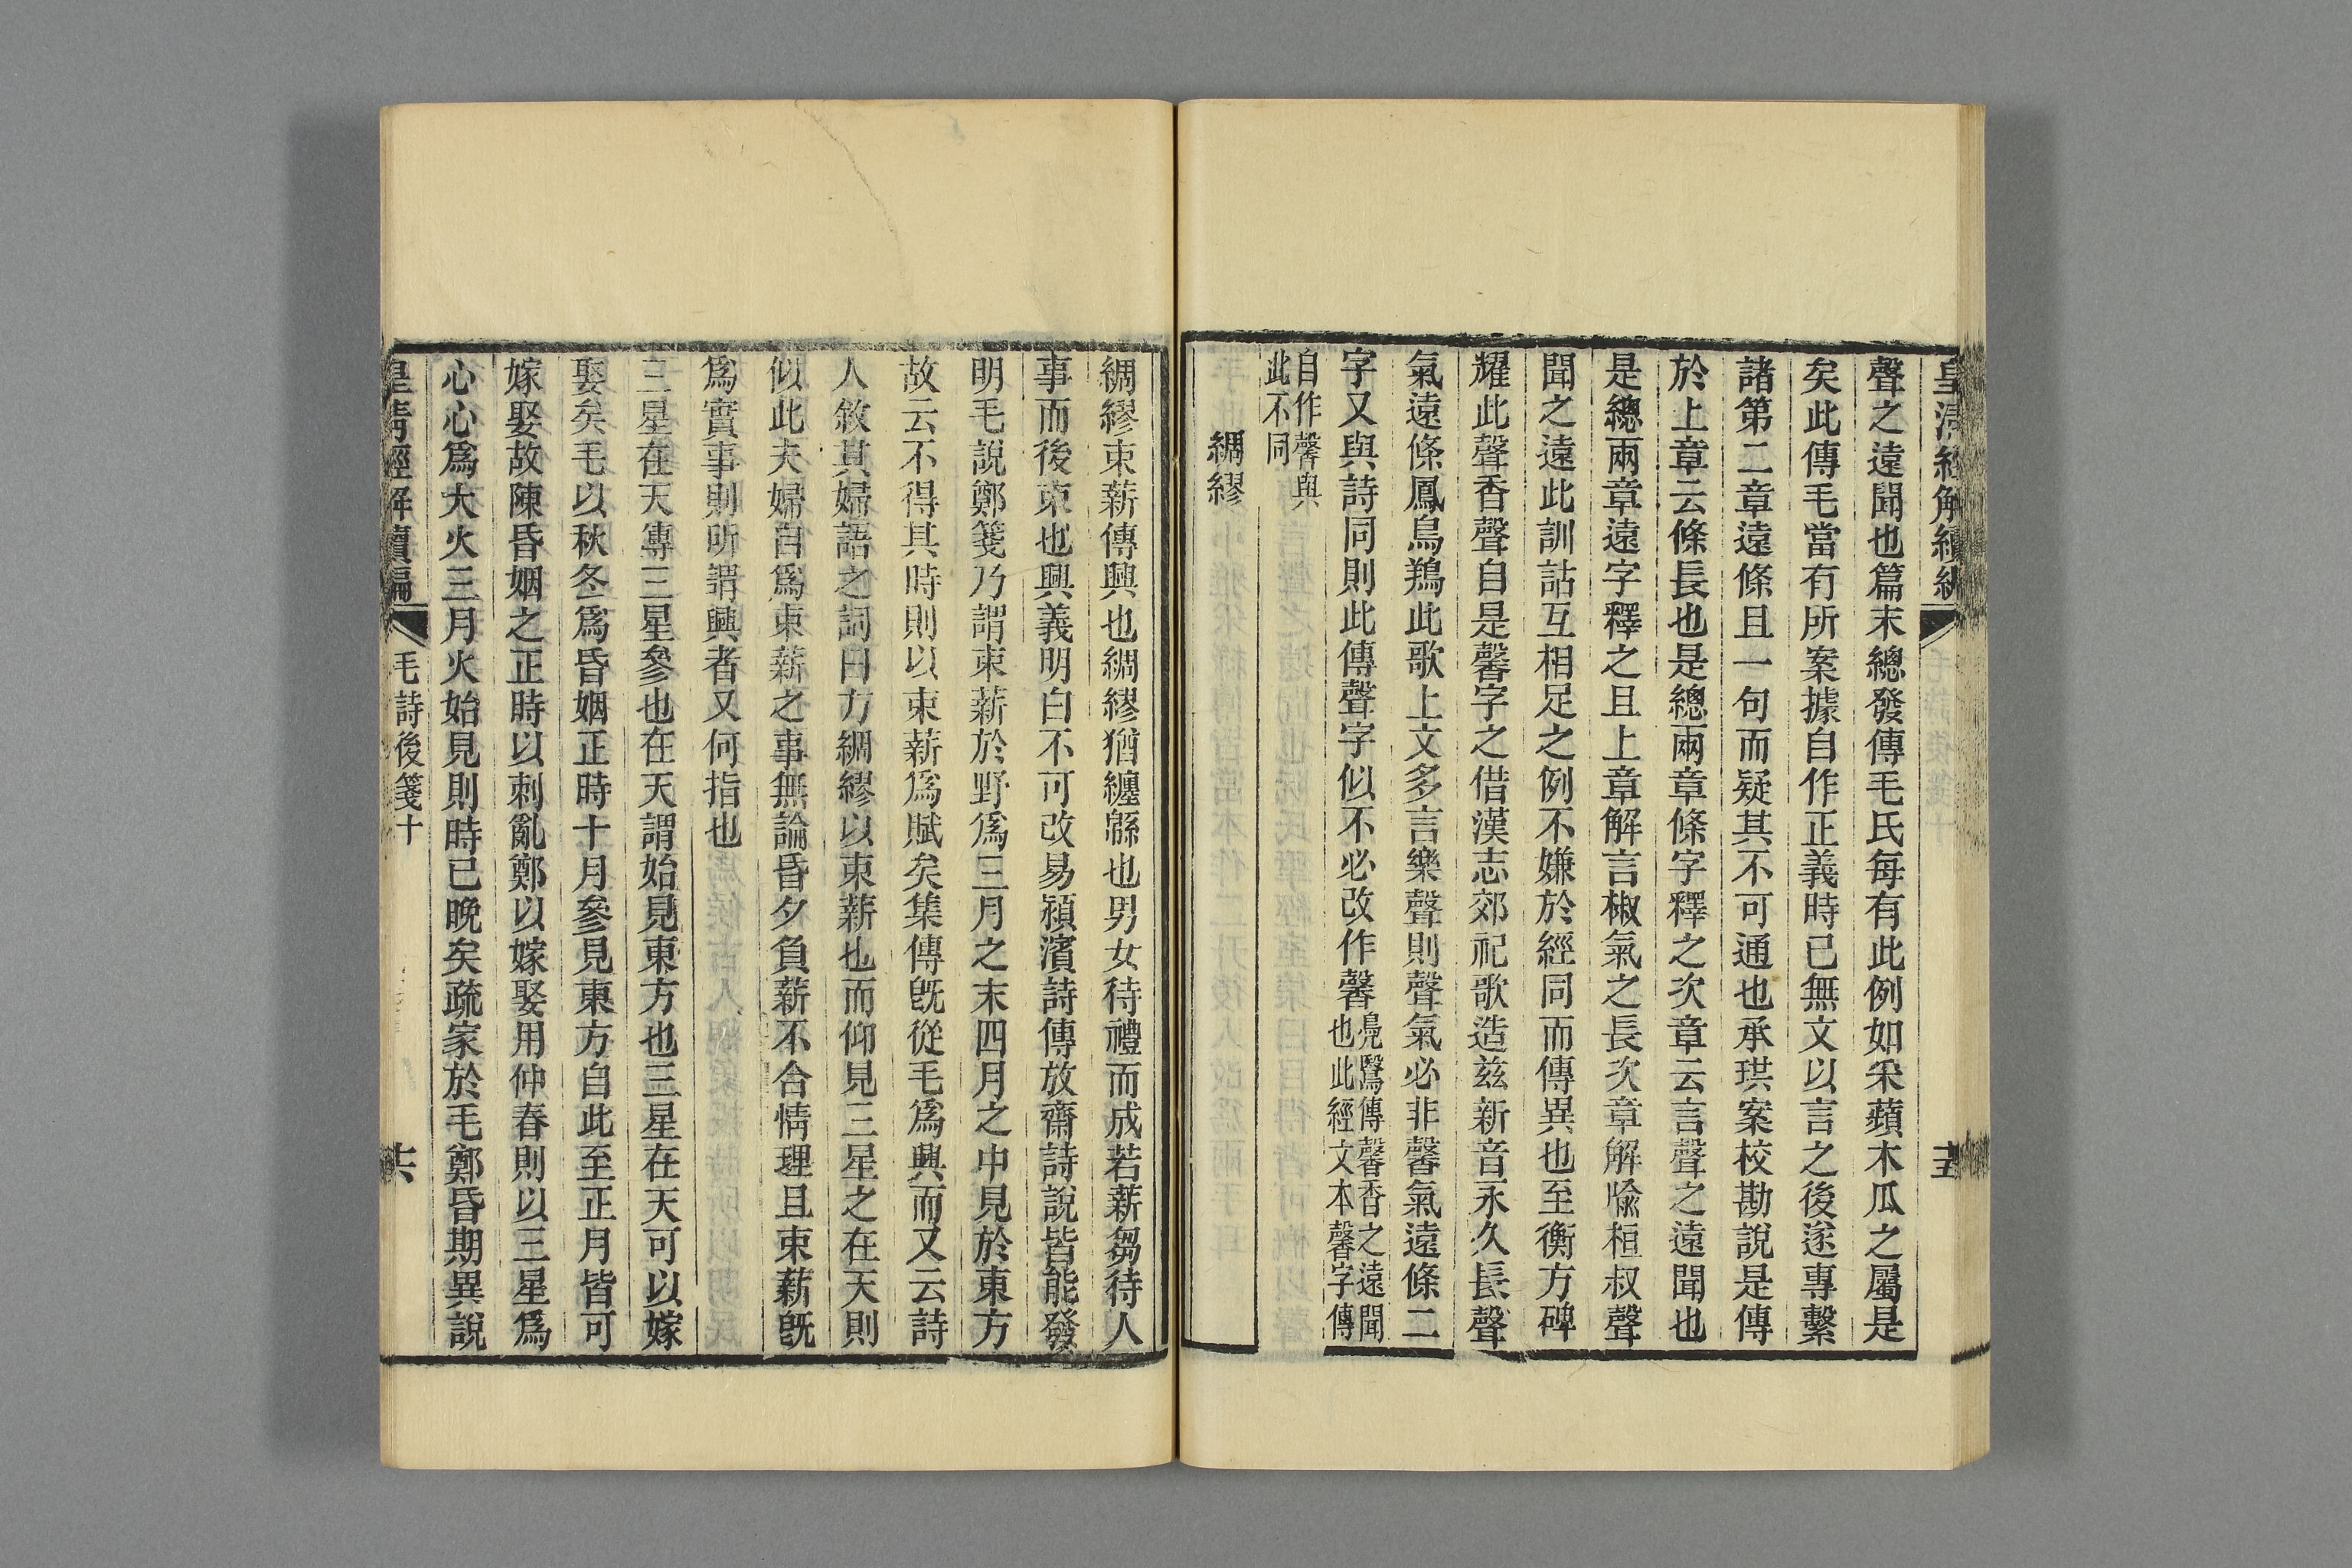 皇清經解續編
十五
聲之遠聞也篇末總發傳毛氏每有此例如采蘋木瓜之屬是
矣此傳毛當有所案據自作正義時已無文以言之後遂專繫
諸第二章遠條且一句而疑其不可通也承珙案校勘說是傳
於上章云條長也是總兩章條字釋之次章云言聲之遠聞也
是總兩章遠字釋之且上章解言椒氣之長次章解喩桓叔聲
聞之遠此訓詁互相足之例不嫌於經同而傳異也至衡方碑
耀此聲香聲自是馨字之借漢志郊祀歌造兹新音永久長聲
氣遠條鳳鳥鶈此歌上文多言樂聲則聲氣必非馨氣遠條二
字又與詩同則此傳聲字似不必改作馨
鳧鷖傳馨香之遠聞
也此經文本馨字傳
自作馨與
此不同
綢繆
綢繆束薪傳興也綢繆猶纏緜也男女待禮而成若薪芻待人
事而後束也興義明白不可改易潁濱詩傳放齋詩說皆能發
明毛說鄭箋乃謂束薪於野爲三月之末四月之中見於東方
故云不得其時則以束薪爲賦矣集傳旣從毛爲興而又云詩
人敘其婦語之詞曰方綢繆以束薪也而仰見三星之在天則
似此夫婦自爲束薪之事無論昏夕負薪不合情理且束薪旣
爲實事則所謂興者又何指也
三星在天傳三星參也在天謂始見東方也三星在天可以嫁
娶矣毛以秋冬爲昏姻正時十月參見東方自此至正月皆可
嫁娶故陳昏姻之正時以刺亂鄭以嫁娶用仲春則以三星爲
心心爲大火三月火始見則時已晚矣疏家於毛鄭昏期異說
皇清經解續編
毛詩後箋十
十六